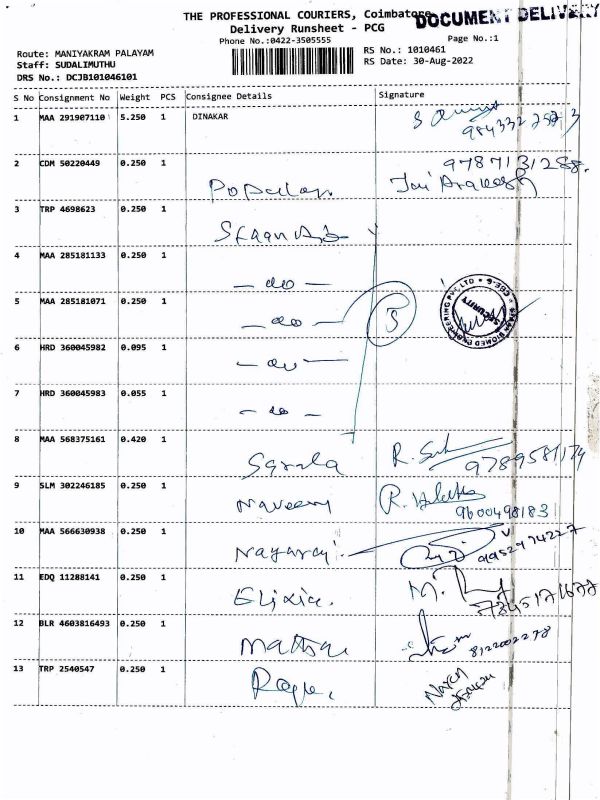 THE PROFESSIONAL COURIERS, Coimbatore
DOCUMENT DELIVERY
Delivery Runsheet - PCG
Phone No.:0422-3505555
Page No.:1
Route: MANIYAKRAM PALAYAM
Staff: SUDALIMUTHU
DRS No.: DCJB101046101
RS No.: 1010461
RS Date: 30-Aug-2022
S No Consignment No Weight PCS Consignee Details Signature
1 MAA 291907110 5.250 1 DINAKAR
2 CDM 50220449 0.250 1 Popular
9787131288.
3 TRP 4698623 0.250 1
4 MAA 285181133 0.250 1 — do —
5 MAA 285181071 0.250 1 — do — 5
SECURITY
6 HRD 360045982 0.095 1 — do —
7 HRD 360045983 0.055 1 — do —
8 MAA 568375161 0.420 1 Sarala
9789581174
9 SLM 302246185 0.250 1 Naveen
9600498183
10 MAA 566630938 0.250 1 Nagaraj
9952974227
11 EDQ 11288141 0.250 1 Elixir.
12 BLR 4603816493 0.250 1
8122002278
13 TRP 2540547 0.250 1